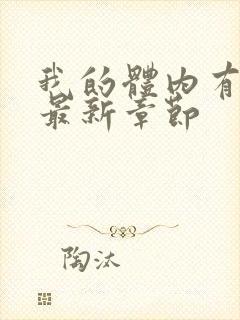 我的體內有
最新章節
陶汰